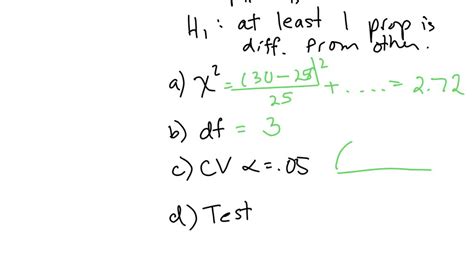 H₁: at least 1 prop is
diff. from other.
a) χ² = (30-25)²/25 + .... = 2.72
b) df = 3
c) CV α=.05
d) Test